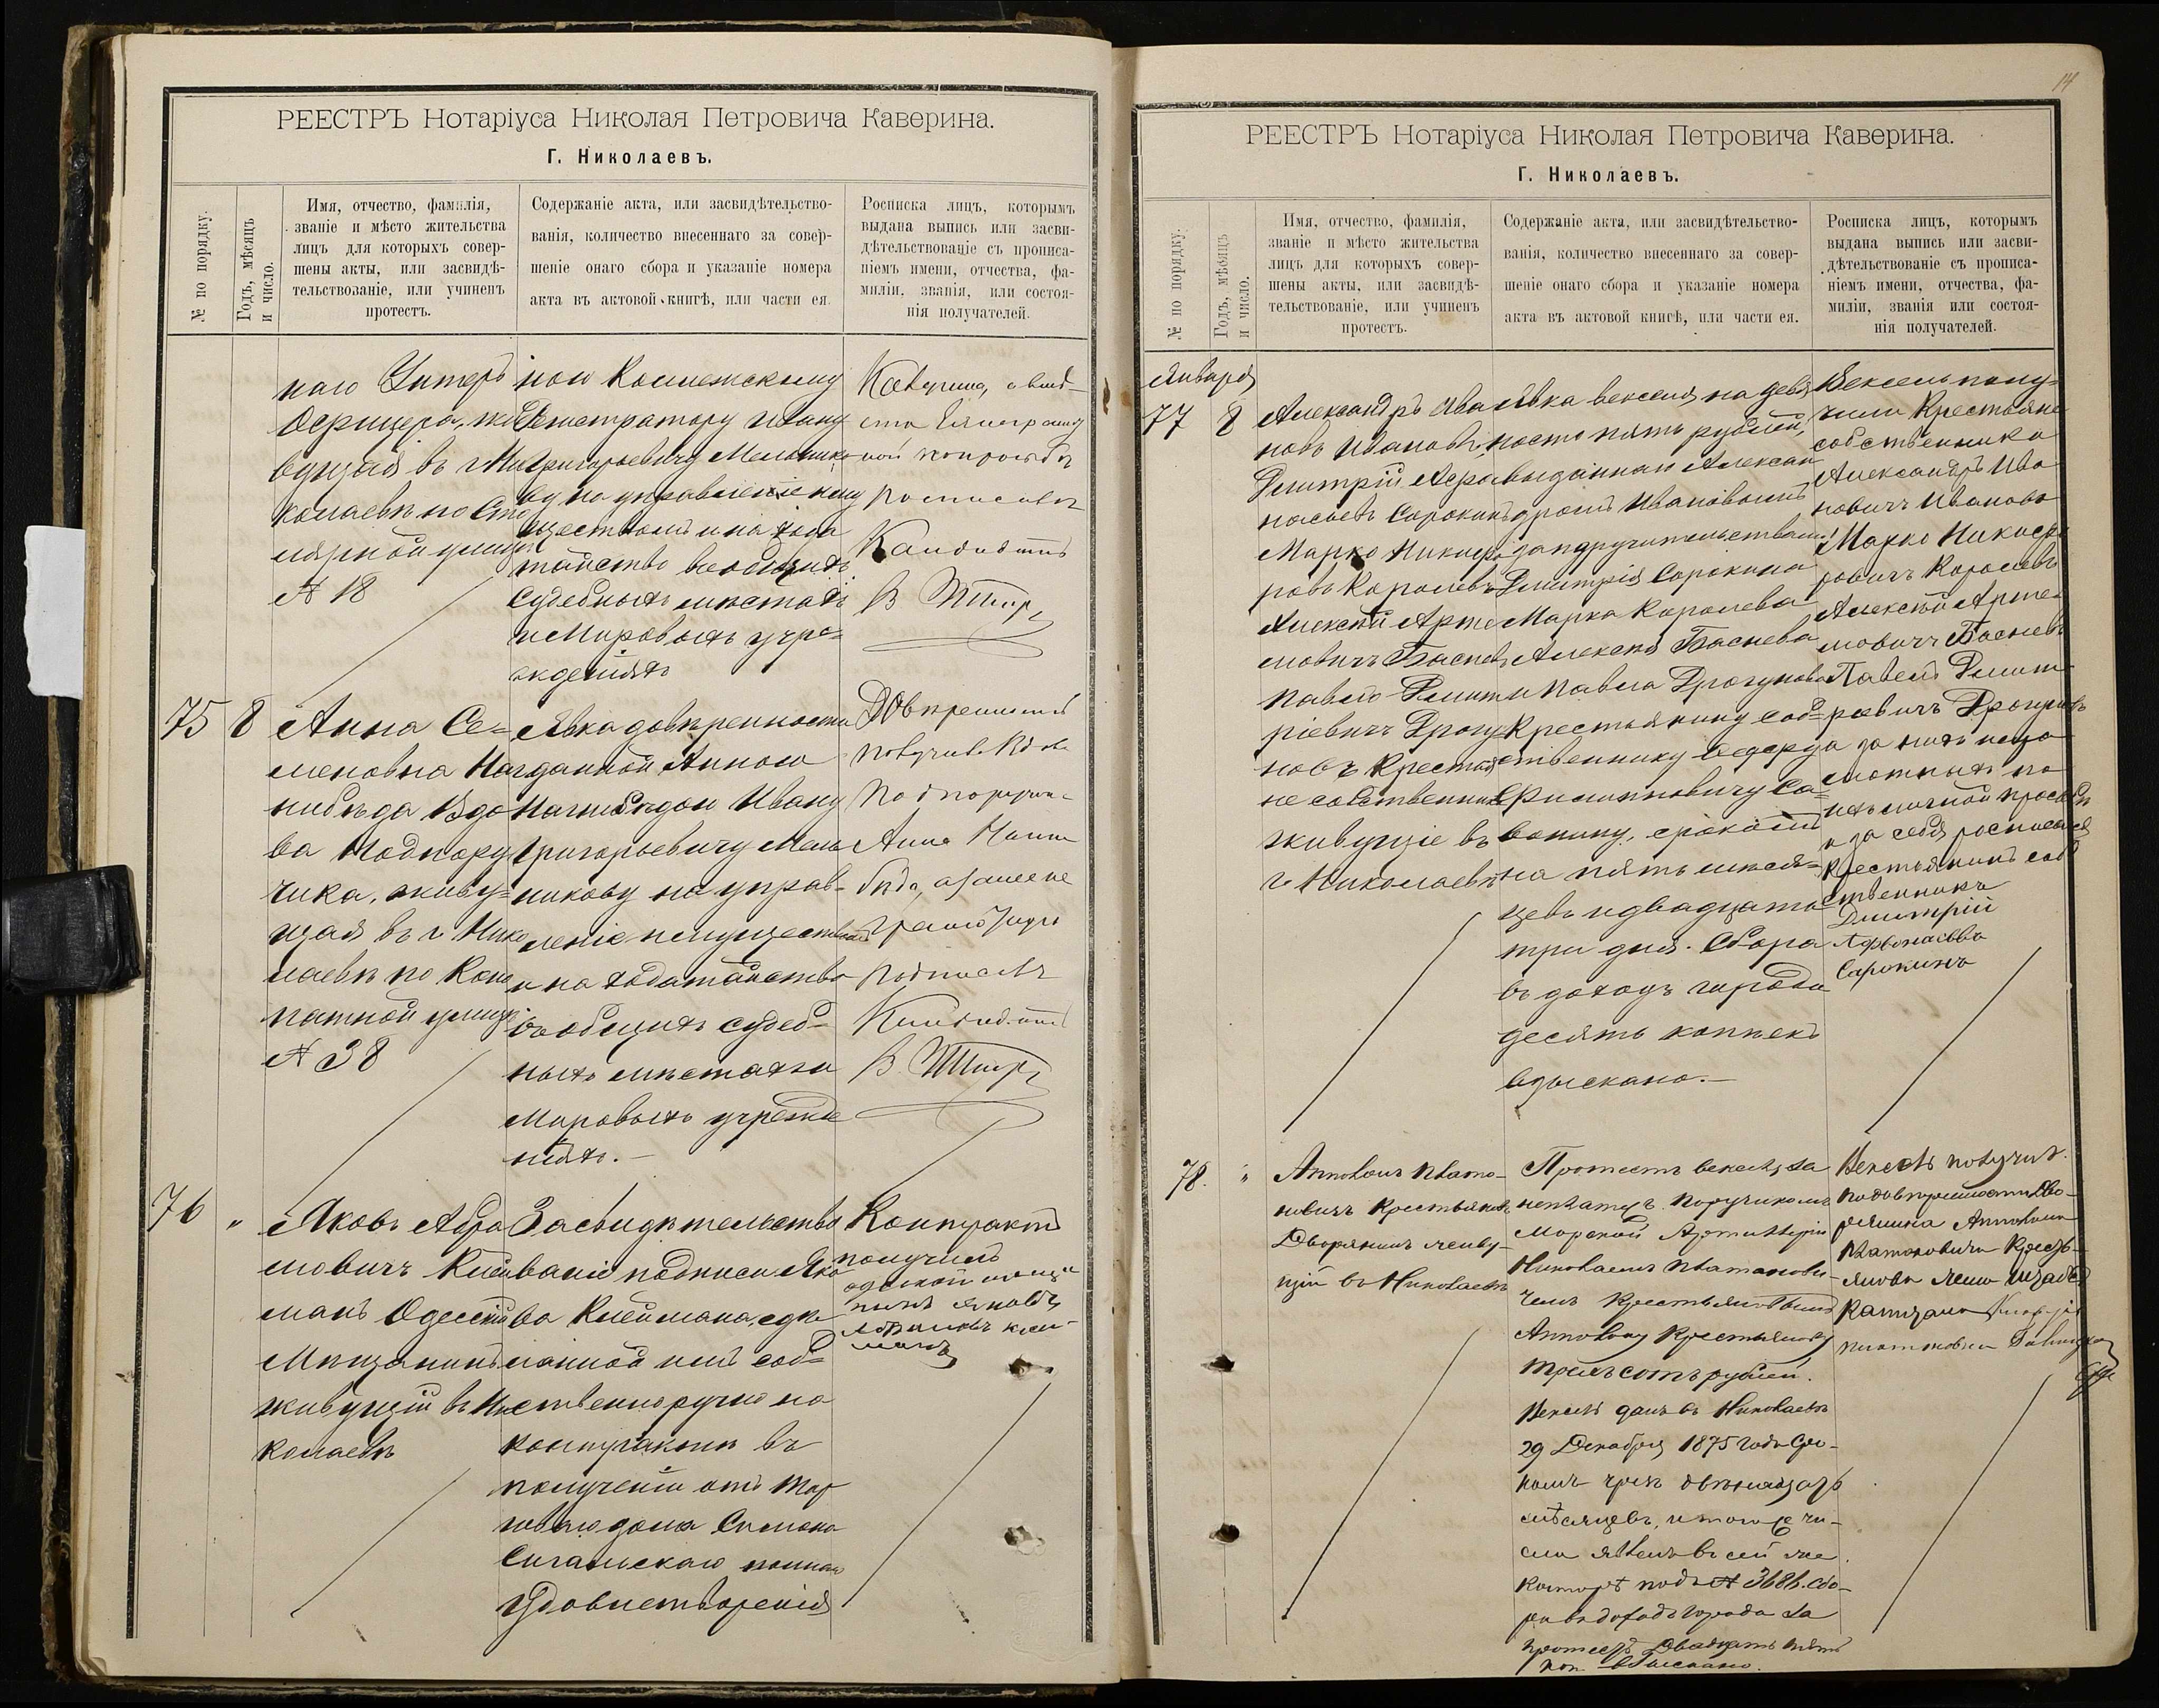 РЕЕСТРЪ Нотаріуса Николая Петровича Каверина.
Г. Николаевъ.
№ по порядку.
Годъ, мѣсяцъ
и число.
Имя, отчество, фамилія,
званіе и мѣсто жительства
лицъ для которыхъ совер-
шены акты, или засвидѣ-
тельствованіе, или учиненъ
протестъ.
Содержаніе акта, или засвидѣтельство-
ванія, количество внесеннаго за совер-
шеніе онаго сбора и указаніе номера
акта въ актовой книгѣ, или части ея.
Росписка лицъ, которымъ
выдана выпись или засви-
дѣтельствованіе съ прописа-
ніемъ имени, отчества, фа-
миліи, званія, или состоя-
нія получателей.
наго Унтеръ
Офицера, жи
вущая въ г Ни
колаевѣ по Сто
лярной улицѣ
№ 18
ною Коллежскому
Регистратору Ивану
Григорьевичу Мельнико
ву на управленіе иму
ществомъ и на хода
тайство въ общихъ
судебныхъ мѣстахъ
и Мировыхъ учре=
жденіяхъ
росписался
Кандидатъ
В Штир
75 8
Анна Се=
меновна Наг
нибѣда Вдо
ва Подпору
чика, живу=
щая въ г Нико
лаевѣ по Кона
патной улицѣ
№ 38
Явка довѣренности
данной Анною
Нагнибѣдою Ивану
Григорьевичу Мель
никову на управ-
леніе имуществомъ
и на ходатайство
въ общихъ судеб-
ныхъ мѣстахъ и
Мировыхъ учрежде
ніяхъ.—
Довѣренность
получила Вдова
Подпоручика
Анна Нагни
бѣда, а за нее не
грамотную
росписался
Кандидатъ
В. Штир
76 "
Яковъ Абра
мовичъ Клей
манъ Одесскій
Мѣщанинъ
живущій въ Ни
колаевѣ
Засвидѣтельство
ваніе подписи Яко
ва Клеймана, сдѣ
ланной имъ соб=
ственноручно на
контрактѣ въ
полученіи отъ Тор
говаго дома Симона
Сигальскаго полнаго
удовлетворенія
Контрактъ
получилъ
одесской мещ
нинъ Яковъ
Абрамовъ клей-
манъ
14
РЕЕСТРЪ Нотаріуса Николая Петровича Каверина.
Г. Николаевъ.
№ по порядку.
Годъ, мѣсяцъ
и число.
Имя, отчество, фамилія,
званіе и мѣсто жительства
лицъ для которыхъ совер-
шены акты, или засвидѣ-
тельствованіе, или учиненъ
протестъ.
Содержаніе акта, или засвидѣтельство-
ванія, количество внесеннаго за совер-
шеніе онаго сбора и указаніе номера
акта въ актовой книгѣ, или части ея.
Росписка лицъ, которымъ
выдана выпись или засви-
дѣтельствованіе съ прописа-
ніемъ имени, отчества, фа-
миліи, званія или состоя-
нія получателей.
Января
77 8
Александръ Ива
новъ Ивановъ,
Дмитрій Афа
насьевъ Сорокинъ
Марко Никифо
ровъ Королевъ
Алексѣй Арте
мовичъ Басневъ
Павелъ Дмит
ріевичъ Драгу
новъ Крестья
не собственники
живущіе въ
г Николаевѣ
Явка векселя на девя
носто пять рублей,
выданнаго Алексан
дромъ Ивановымъ
за поручительствомъ
Дмитрія Сорокина
Марка Королева
Алексѣя Баснева
и Павла Драгунова
Крестьянину соб=
ственнику Федору
Филипповичу Са=
вонину, срокомъ
на пять мѣся=
цевъ и двадцать
три дня. Сбора
въ доходъ города
десять копѣекъ
взыскано.—
Вексель полу=
чили Крестьяне
собственники
Александръ Ива
новичъ Ивановъ
Марко Никифо
ровичъ Королевъ
Алексѣй Арте
мовичъ Басневъ
Павелъ Дмит
ріевичъ Драгуновъ
а за нихъ негра
мотныхъ по
ихъ личной просьбѣ
и за себя росписался
Крестьянинъ соб
ственникъ
Дмитрій
Афонасьевъ
Сарокинъ
78. "
Апполонъ Плато-
новичъ Крестьяновъ
Дворянинъ живу-
щій въ Николаевѣ
Протестъ векселя за
неплатежъ Поручикомъ
Морской Артиллеріи
Николаемъ Платонови-
чемъ Крестьяновымъ
Апполону Крестьянову
трехъ сотъ рублей.
Вексель данъ въ Николаевѣ
29 Декабря 1875 года Сро-
комъ чрезъ двѣнадцать
мѣсяцевъ, и того же чи-
сла явленъ въ сей же
Конторѣ подъ № 3686. Сбо-
ра въ доходъ города за
протестъ Двадцать пять
коп взыскано.
Вексель получилъ
по довѣренности Дво-
рянина Апполона
Платоновича Кресть-
янова жена Штабсъ
Капитана